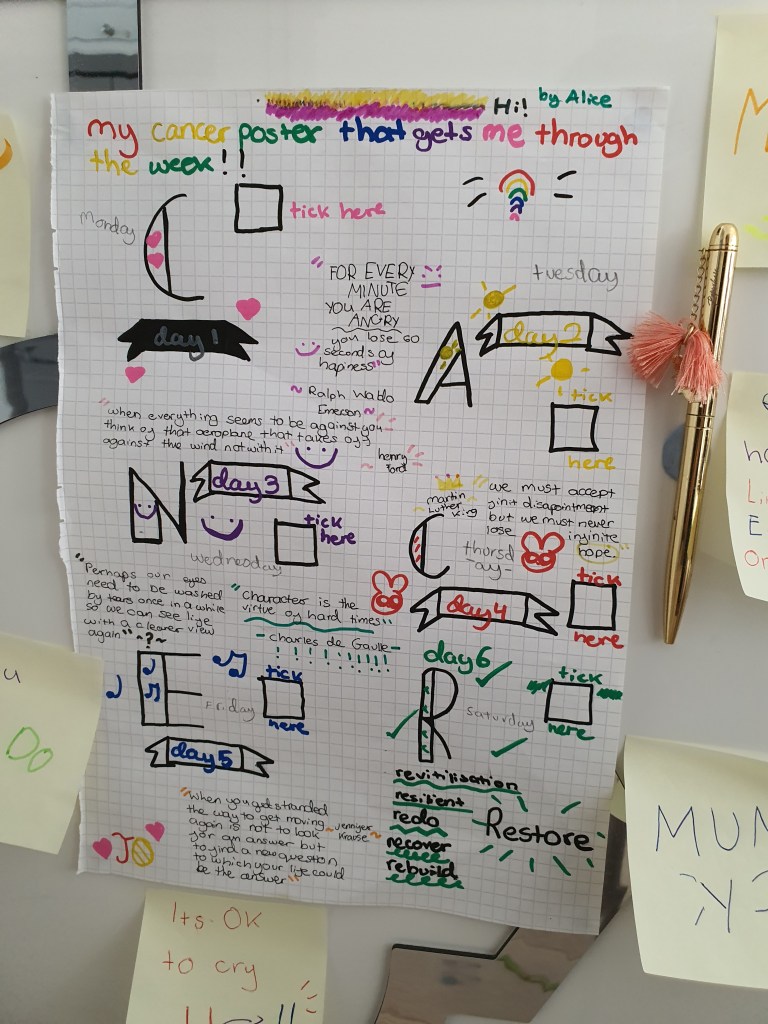 Hi! by Alice
my cancer poster that gets me through
the week!!
Monday
C
tick here
day 1
"FOR EVERY
MINUTE
YOU ARE
ANGRY
you lose 60
seconds of
hapiness"
~ Ralph Waldo
Emerson ~
tuesday
A
day 2
tick
here
"when everything seems to be against you
think of that aeroplane that takes off
against the wind not with it"
henry
ford
N
day3
wednesday
tick
here
martin
Luther King
"we must accept
finit disapointment
but we must never
lose infinite
hope."
C
thursd
-ay-
day4
tick
here
"Perhaps our eyes
need to be washed
by tears once in a while
so we can see life
with a clearer view
again" ~?~
"Character is the
virtue of hard times"
- Charles de Gaulle -
! ! ! ! ! ! ! ! ! !
E
Friday
tick
here
day5
day6
R
saturday
tick
here
"When you get stranded
the way to get moving
again is not to look
for an answer but
to find a new question
to which your life could
be the answer"
~ jennifer
Krause ~
revitilisation
resilient
redo
recover
rebuild
Restore
JO
Its OK
to cry
U
DO
MUM